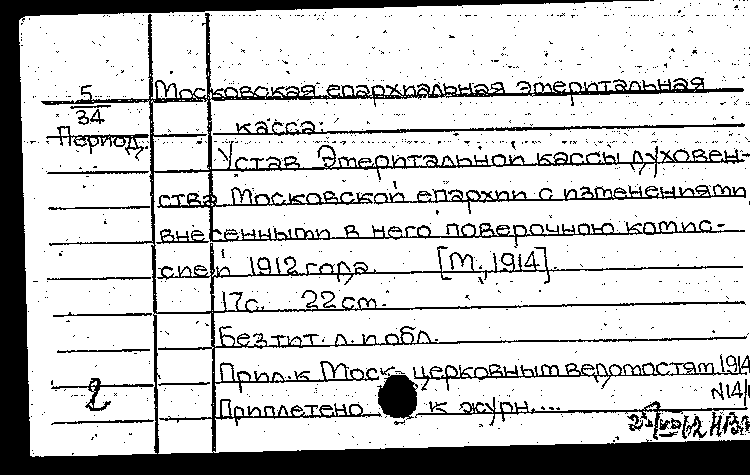 5/34
Период.
Московская епархиальная эмеритальная
касса.
Устав Эмеритальной кассы духовен-
ства Московской епархии с изменениями,
внесенными в него поверочною комис-
сией 1912 года. [М., 1914].
17с. 22см.
Без тит. л. и обл.
Прил. к Моск. церковным ведомостям 1914
N14/
2
Приплетено к журн...